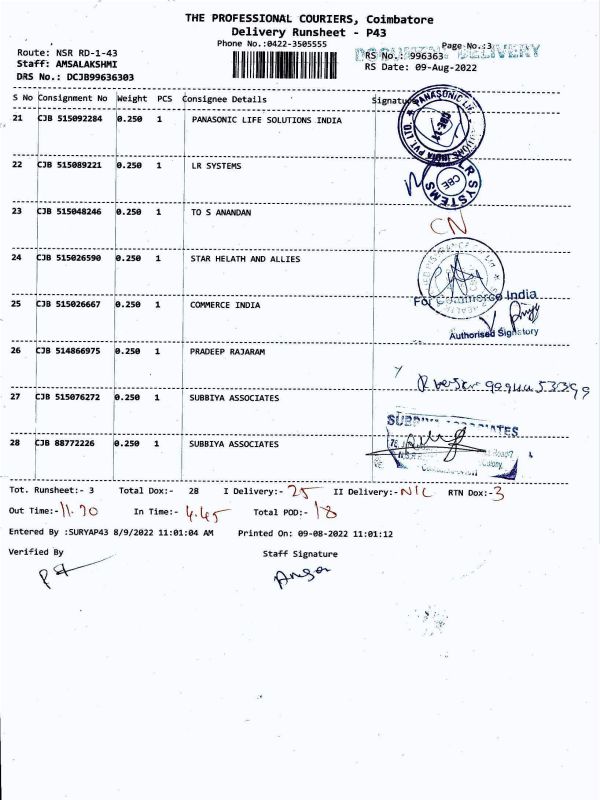 THE PROFESSIONAL COURIERS, Coimbatore
Delivery Runsheet - P43
Phone No.:0422-3505555
Page No.:3
DELIVERY
Route: NSR RD-1-43
RS No.: 996363
Staff: AMSALAKSHMI
RS Date: 09-Aug-2022
DRS No.: DCJB99636303
S No Consignment No Weight PCS Consignee Details Signature
21 CJB 515092284 0.250 1 PANASONIC LIFE SOLUTIONS INDIA
22 CJB 515089221 0.250 1 LR SYSTEMS
LR SYSTEMS
CBE
23 CJB 515048246 0.250 1 TO S ANANDAN
CN
24 CJB 515026590 0.250 1 STAR HELATH AND ALLIES
25 CJB 515026667 0.250 1 COMMERCE INDIA
For Commerce India
Authorised Signatory
26 CJB 514866975 0.250 1 PRADEEP RAJARAM
27 CJB 515076272 0.250 1 SUBBIYA ASSOCIATES
SUBBIYA ASSOCIATES
28 CJB 88772226 0.250 1 SUBBIYA ASSOCIATES
Tot. Runsheet:- 3 Total Dox:- 28 I Delivery:- 25 II Delivery:- NIL RTN Dox:- 3
Out Time:- 11.30 In Time:- 4.45 Total POD:- 18
Entered By :SURYAP43 8/9/2022 11:01:04 AM Printed On: 09-08-2022 11:01:12
Verified By Staff Signature